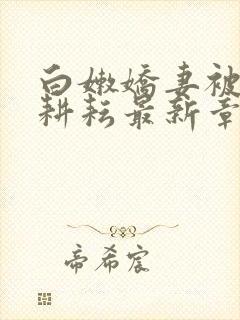 白嫩娇妻被
耕耘最新章
帝希宸